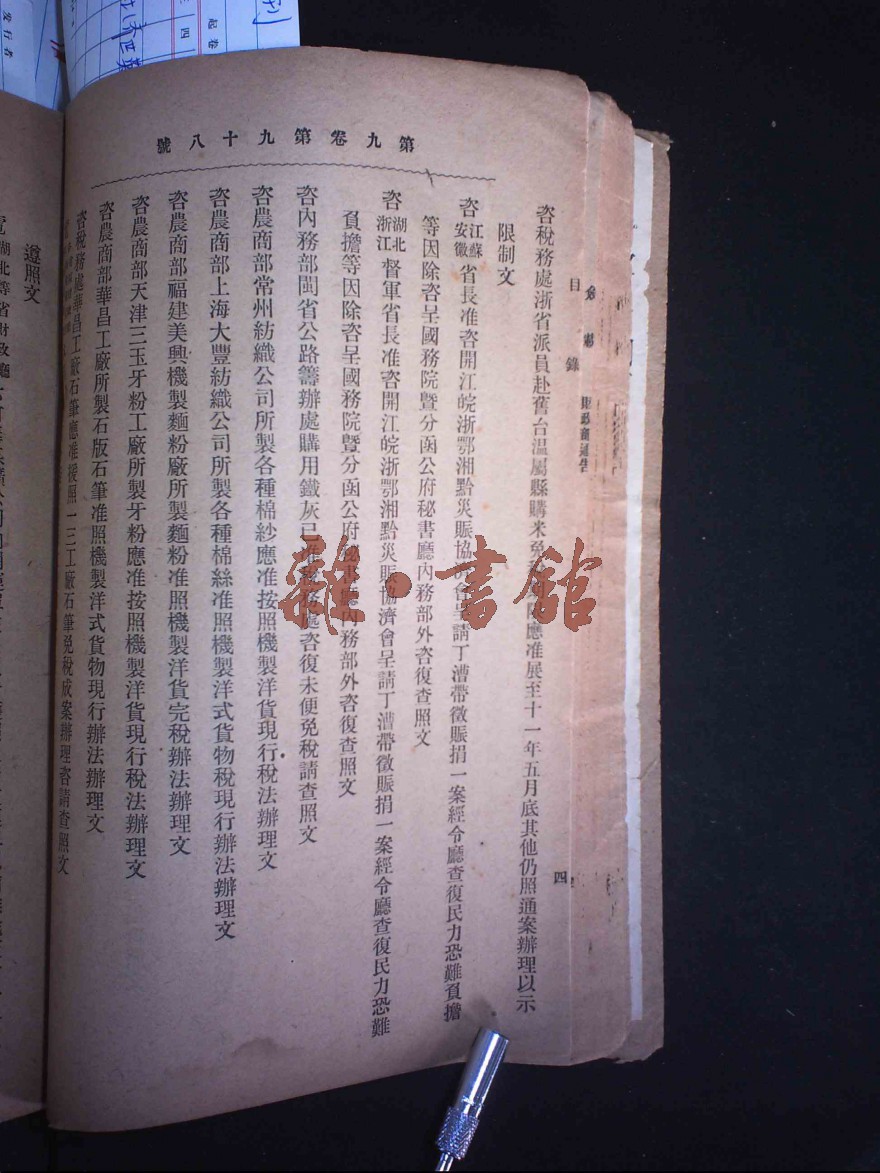 第九卷第九十八號
目錄
財政部通告
四
咨稅務處浙省派員赴舊台溫屬縣購米免應准展至十一年五月底其他仍照通案辦理以示
限制文
咨江蘇安徽省長准咨開江皖浙鄂湘黔災賑協濟會呈請丁漕帶徵賑捐一案經令廳查復民力恐難負擔
等因除咨呈國務院暨分函公府秘書廳內務部外咨復查照文
咨湖北浙江督軍省長准咨開江皖浙鄂湘黔災賑協濟會呈請丁漕帶徵賑捐一案經令廳查復民力恐難
負擔等因除咨呈國務院暨分函公府秘書廳內務部外咨復查照文
咨內務部閩省公路籌辦處購用鐵灰已准稅務處咨復未便免稅請查照文
咨農商部常州紡織公司所製各種棉紗應准按照機製洋貨現行稅法辦理文
咨農商部上海大豐紡織公司所製各種棉絲准照機製洋式貨物稅現行辦法辦理文
咨農商部福建美興機製麵粉廠所製麵粉准照機製洋貨完稅辦法辦理文
咨農商部天津三玉牙粉工廠所製牙粉應准按照機製洋貨現行稅法辦理文
咨農商部華昌工廠所製石版石筆准照機製洋式貨物現行辦法辦理文
咨稅務處華昌工廠石筆應准援照一三工廠石筆免稅成案辦理咨請查照文
遵照文
湖北等省財政廳
雜·書館
起卷
四
發行者